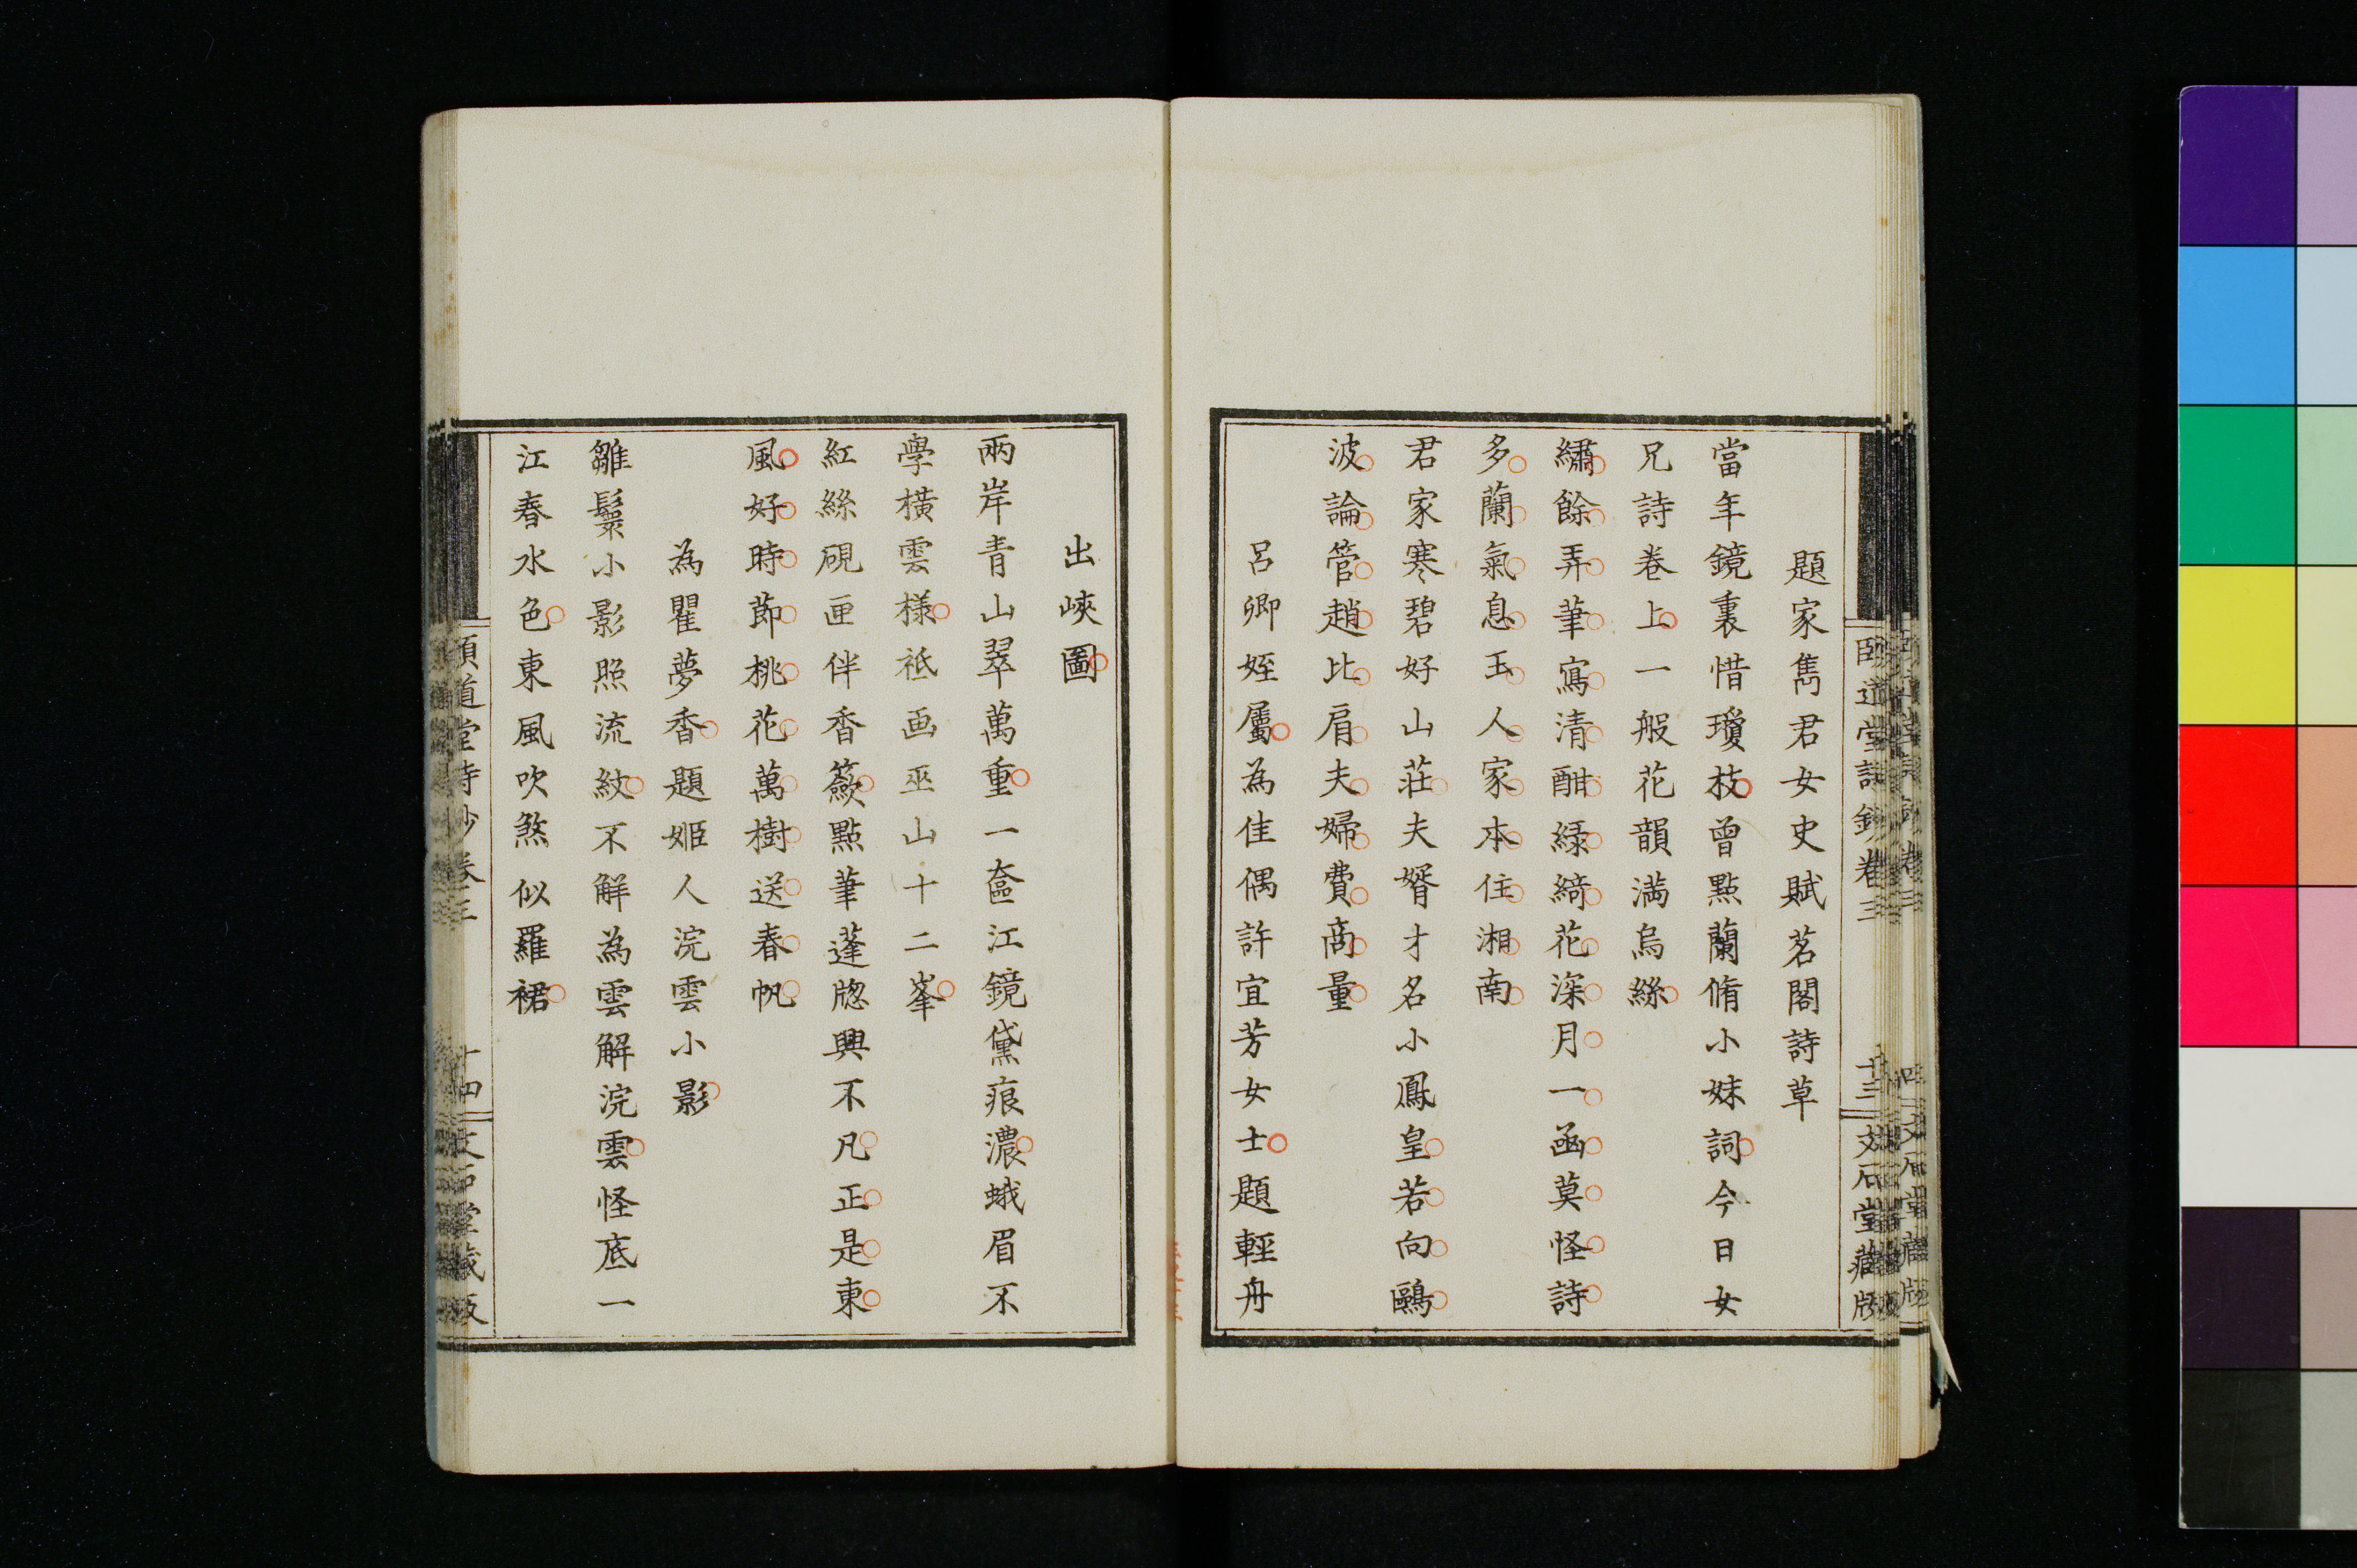 題家雋君女史賦茗閣詩草
當年鏡裏惜瓊枝曾點蘭脩小妹詞今日女
兄詩卷上一般花韻滿烏絲
繡餘弄筆寫清酣綠綺花深月一函莫怪詩
多蘭氣息玉人家本住湘南
君家寒碧好山莊夫婿才名小鳳皇若向鷗
波論管趙比肩夫婦費商量
呂卿姪屬為佳偶許宜芳女士題輕舟
頤道堂詩鈔卷三
十三
文石堂藏版
出峽圖
兩岸青山翠萬重一奩江鏡黛痕濃蛾眉不
學橫雲樣祗画巫山十二峯
紅絲硯匣伴香籨點筆蓬牎興不凡正是東
風好時節桃花萬樹送春帆
為瞿夢香題姬人浣雲小影
雛鬟小影照流紋不解為雲解浣雲怪底一
江春水色東風吹煞似羅裙
頤道堂詩鈔卷三
十四
文石堂藏版